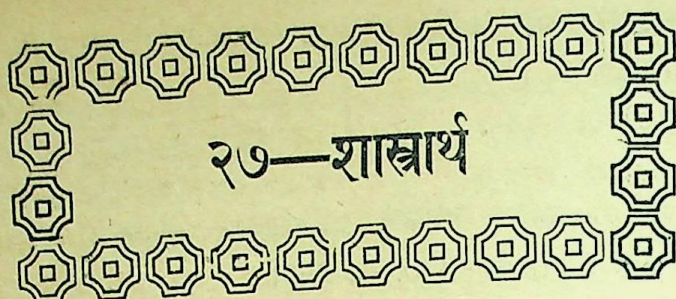 २७—शास्त्रार्थ